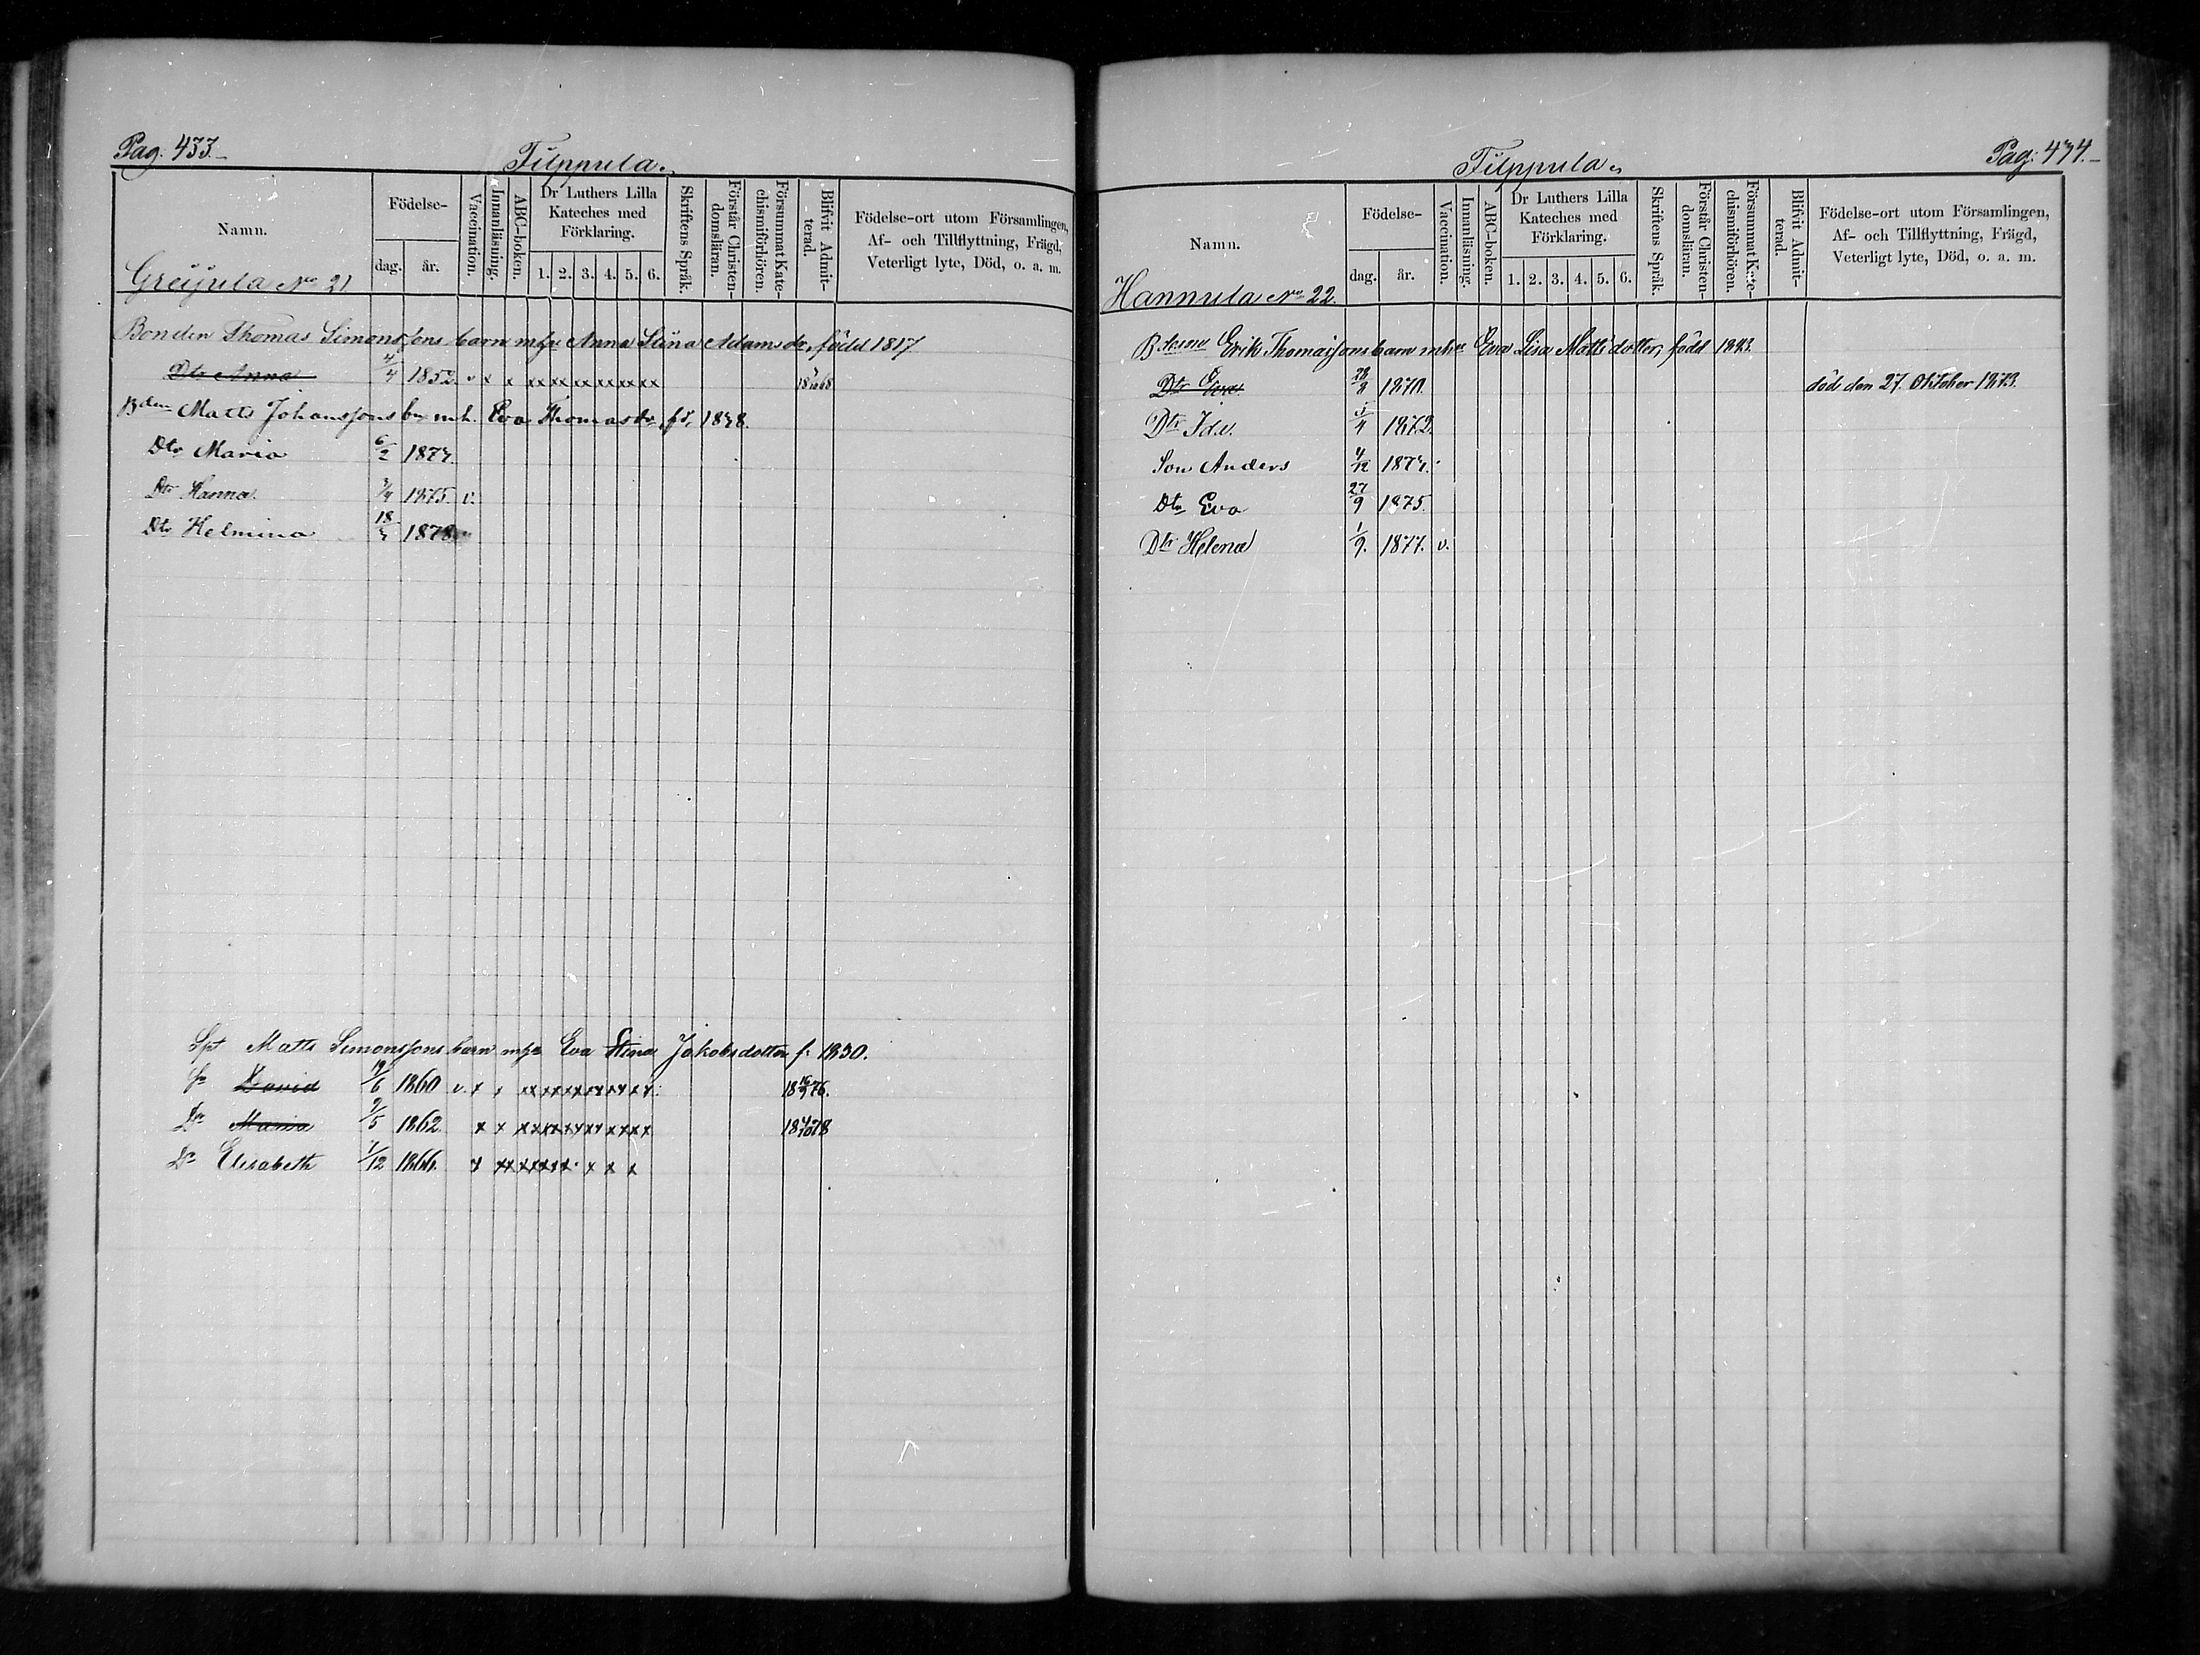 Pag. 433.
Filppula.
Namn.
Födelse-
dag.
år.
Vaccination.
Innanläsning.
ABC-boken.
Dr Luthers Lilla Kateches med Förklaring.
1. 2. 3. 4. 5. 6.
Skriftens Språk.
Förstår Christendomsläran.
Försummat Katechismiförhören.
Blifvit Admitterad.
Födelse-ort utom Församlingen,
Af- och Tillflyttning, Frägd,
Veterligt lyte, Död, o. a. m.
Greijula No 21
Bonden Thomas Simonssons barn m h Anna Stina Adamsdr, född 1817
Dtr Anna 4/4 1852. v x x xx xx xx xx xx xx
Bden Matts Johanssons bn m.h. Eva Thomasdr, fd, 1838.
Dtr Maria 6/2 1874.
Dtr Hanna 3/4 1875. v.
Dtr Helmina 18 1878
Matts Simonssons barn Eva Stina Jakobsdotter f. 1830.
Sn David 19/6 1860 v. x x xx xx xx xx xx xx 18 16/9 76.
Dr Maria 9/5 1862. x x xx xx xx xx xx xx
Dr Elisabeth 1/12 1866. x xx xx xx xx x x x
Pag: 434.
Filppula.
Namn.
Födelse-
dag.
år.
Vaccination.
Innanläsning.
ABC-boken.
Dr Luthers Lilla Kateches med Förklaring.
1. 2. 3. 4. 5. 6.
Skriftens Språk.
Förstår Christendomsläran.
Försummat Katechismiförhören.
Blifvit Admitterad.
Födelse-ort utom Församlingen,
Af- och Tillflyttning, Frägd,
Veterligt lyte, Död, o. a. m.
Hannula No 22.
Erik Thomassons barn m h Eva Lisa Matts dotter, född 1843.
Dtr Eva 28/8 1870. död den 27. Oktober 1873.
Dtr Ida. 1872.
Son Anders 4/12 1874.
Dtr Eva 27/9 1875.
Dtr Helena 1/9. 1877. v.